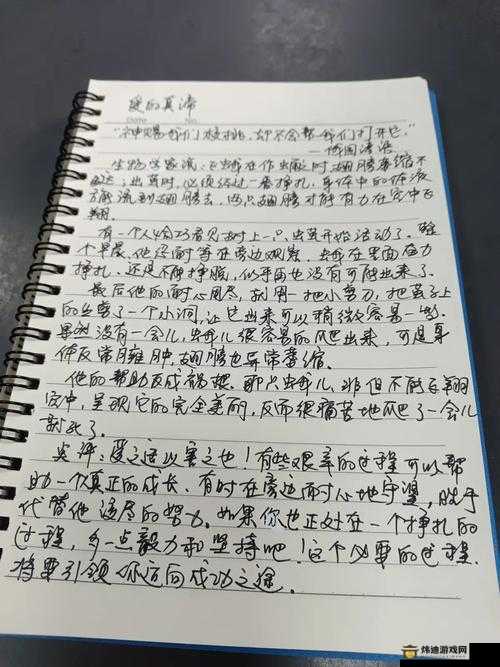 爱的真谛
Date No.
"神赐我们核桃,却不会帮我们打开它。"
——德国谚语
生物学家说:飞蛾在作蛹时,翅膀萎缩不
发达;出茧时,必须经过一番挣扎,身体中的体液
才能流到翅膀去,两只翅膀才能有力在空中飞
翔。
有一个人恰巧看见树上一只虫茧开始活动了。整
个早晨,他经耐等在旁边观察,去蛾在里面奋力
挣扎,还是不能挣脱,似乎再也没有可能出来了。
最后他的耐心用尽,就用一把小剪刀,把茧子上
的丝剪了一个小洞,让它出来可以稍微容易一些。
果然没有一会儿,去蛾儿很容易的爬出来,可是身
体反常臃肿,翅膀也异常萎缩。
他的帮助反成祸患。那只去蛾儿,非但不能飞翔
空中,呈现它的完全美丽,反而很痛苦地爬了一会儿
就死了。
奖评:爱之适以害之也!有些艰辛的过程可以帮
助一个真正的成长,有时在旁边耐心地守望,胜于
代替他该尽的努力。如果你也正处在一个挣扎的
过程,多一点毅力和坚持吧!这个必要的过程,
将要引领你迈向成功之途。
炜迪游戏网